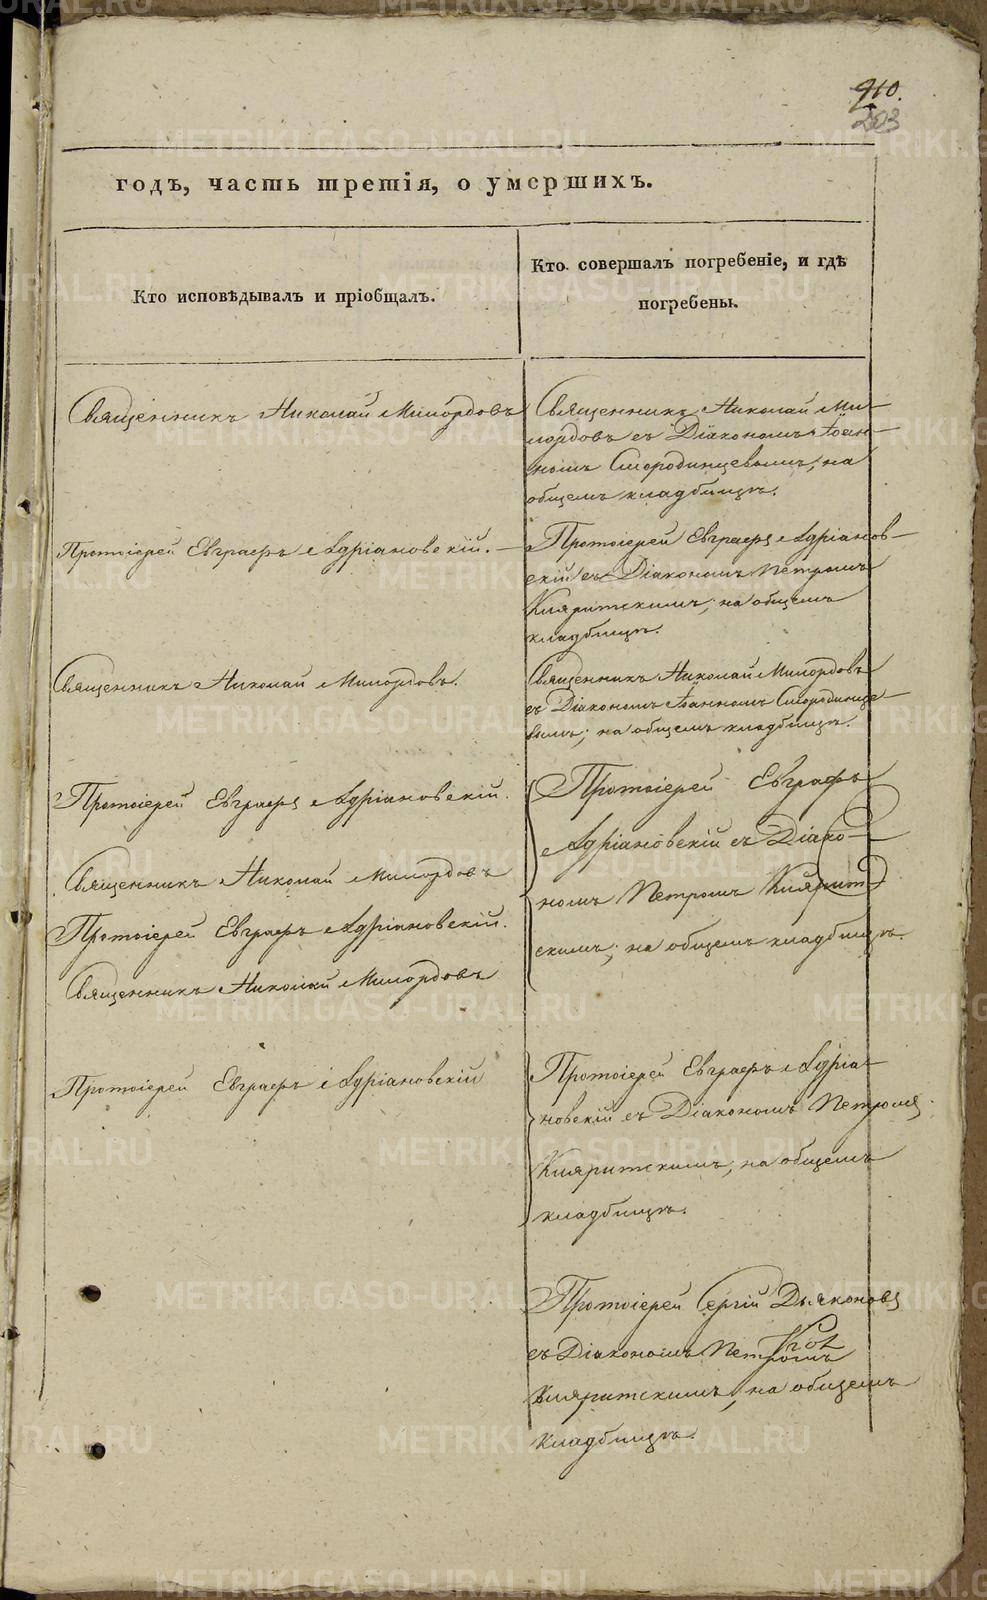 910.
203
годъ, часть третія, о умершихъ.
Кто исповѣдывалъ и пріобщалъ.
Кто совершалъ погребеніе, и гдѣ
погребены.
Священникъ Николай Милордовъ
Священникъ Николай Ми-
лордовъ съ Діакономъ Іоан-
номъ Смородинцевымъ, на
общемъ кладбищѣ.
Протоіерей Евграфъ Адріановскій.
Протоіерей Евграфъ Адріанов-
скій съ Діакономъ Петромъ
Кляритскимъ, на общемъ
кладбищѣ.
Священникъ Николай Милордовъ.
Священникъ Николай Милордовъ
съ Діакономъ Іоанномъ Смородинце-
вымъ; на общемъ кладбищѣ.
Протоіерей Евграфъ Адріановскій.
Священникъ Николай Милордовъ
Протоіерей Евграфъ Адріановскій.
Священникъ Николай Милордовъ
Протоіерей Евграфъ
Адріановскій съ Діако-
номъ Петромъ Кляритскимъ; на общемъ кладбищѣ.
Протоіерей Евграфъ Адріановскій
Протоіерей Евграфъ Адріа-
новскій съ Діакономъ Петромъ
Кляритскимъ, на общемъ
кладбищѣ.
Протоіерей Сергій Дьяконовъ
съ Діакономъ Петромъ
Кляритскимъ, на общемъ
кладбищѣ.
METRIKI.GASO-URAL.RU